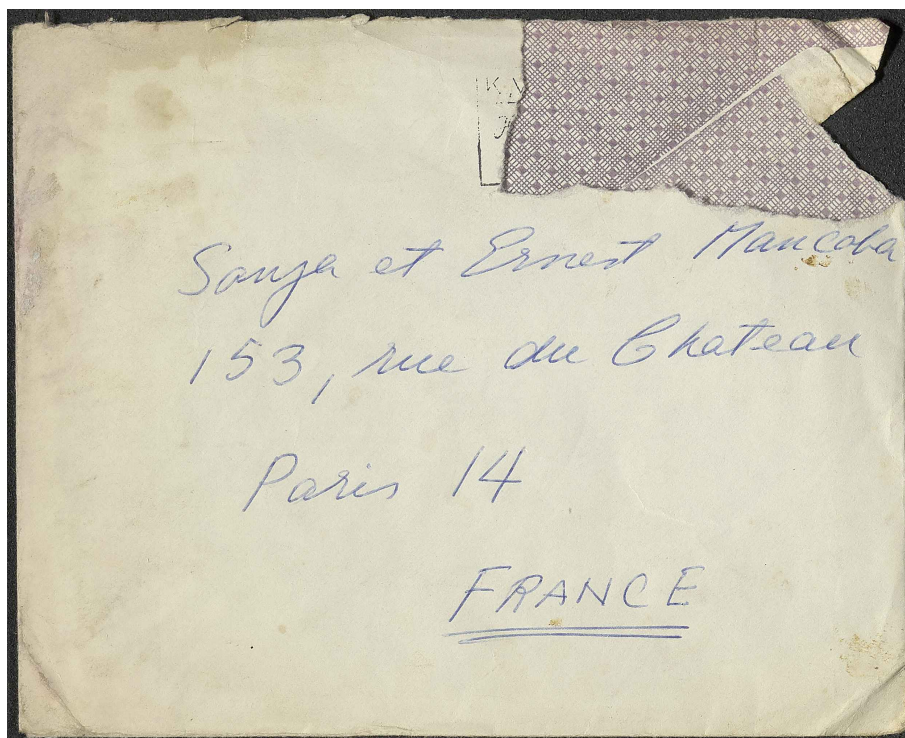 Sonja et Ernest Mancoba
153, rue du Chateau
Paris 14
FRANCE